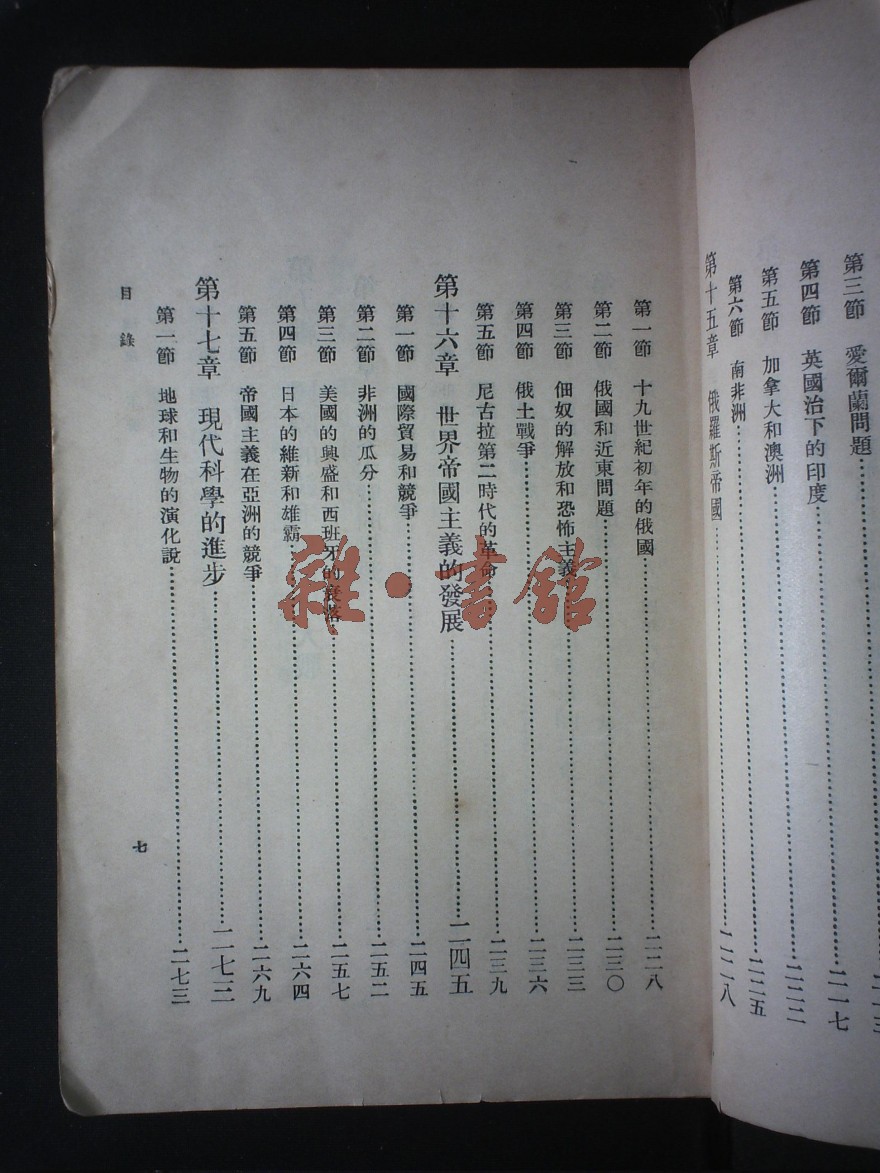 第三節 愛爾蘭問題
第四節 英國治下的印度 二一七
第五節 加拿大和澳洲 二二二
第六節 南非洲 二二五
第十五章 俄羅斯帝國 二二八
第一節 十九世紀初年的俄國 二二八
第二節 俄國和近東問題 二三〇
第三節 佃奴的解放和恐怖主義 二三三
第四節 俄土戰爭 二三六
第五節 尼古拉第二時代的革命 二三九
第十六章 世界帝國主義的發展 二四五
第一節 國際貿易和競爭 二四五
第二節 非洲的瓜分 二五二
第三節 美國的興盛和西班牙的衰落 二五七
第四節 日本的維新和雄霸 二六四
第五節 帝國主義在亞洲的競爭 二六九
第十七章 現代科學的進步 二七三
第一節 地球和生物的演化說 二七三
目錄
七
雜·書館